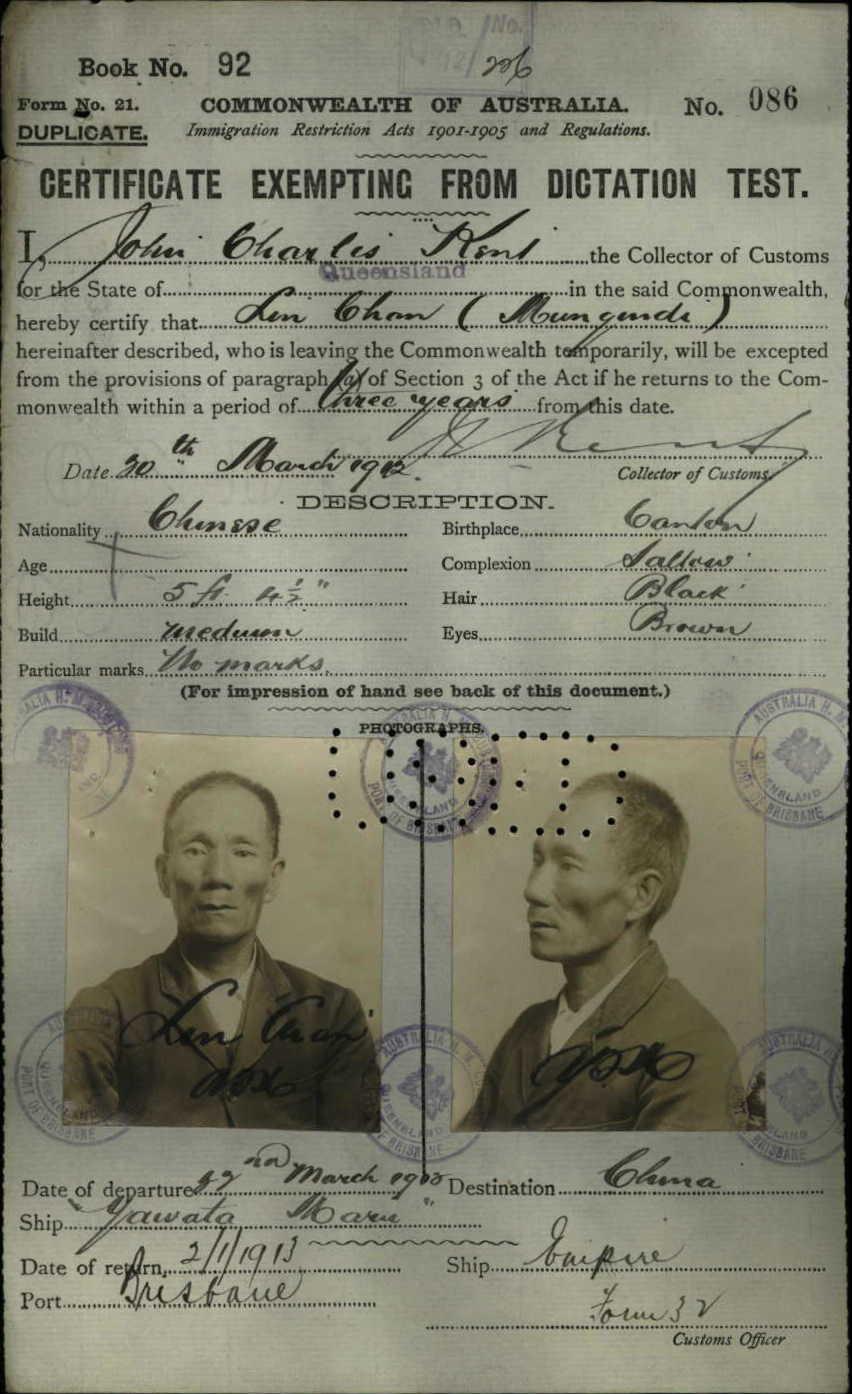 Book No. 92
206
Form No. 21.
COMMONWEALTH OF AUSTRALIA.
No. 086
DUPLICATE.
Immigration Restriction Acts 1901-1905 and Regulations.
CERTIFICATE EXEMPTING FROM DICTATION TEST.
I, John Charles Kent the Collector of Customs
for the State of Queensland in the said Commonwealth,
hereby certify that Lin Chan (Mungindi)
hereinafter described, who is leaving the Commonwealth temporarily, will be excepted
from the provisions of paragraph (a) of Section 3 of the Act if he returns to the Com-
monwealth within a period of three years from this date.
Date 20th March 1912.
Collector of Customs.
DESCRIPTION.
Nationality Chinese
Birthplace Canton
Age
Complexion Sallow
Height 5 ft 4½"
Hair Black
Build medium
Eyes Brown
Particular marks No marks.
(For impression of hand see back of this document.)
PHOTOGRAPHS.
AUSTRALIA H. M.
QUEENSLAND
PORT OF BRISBANE
Date of departure 22nd March
Destination China
Ship Yawata Maru
Date of return, 2/1/1913
Ship Empire
Port Brisbane
Form 32
Customs Officer